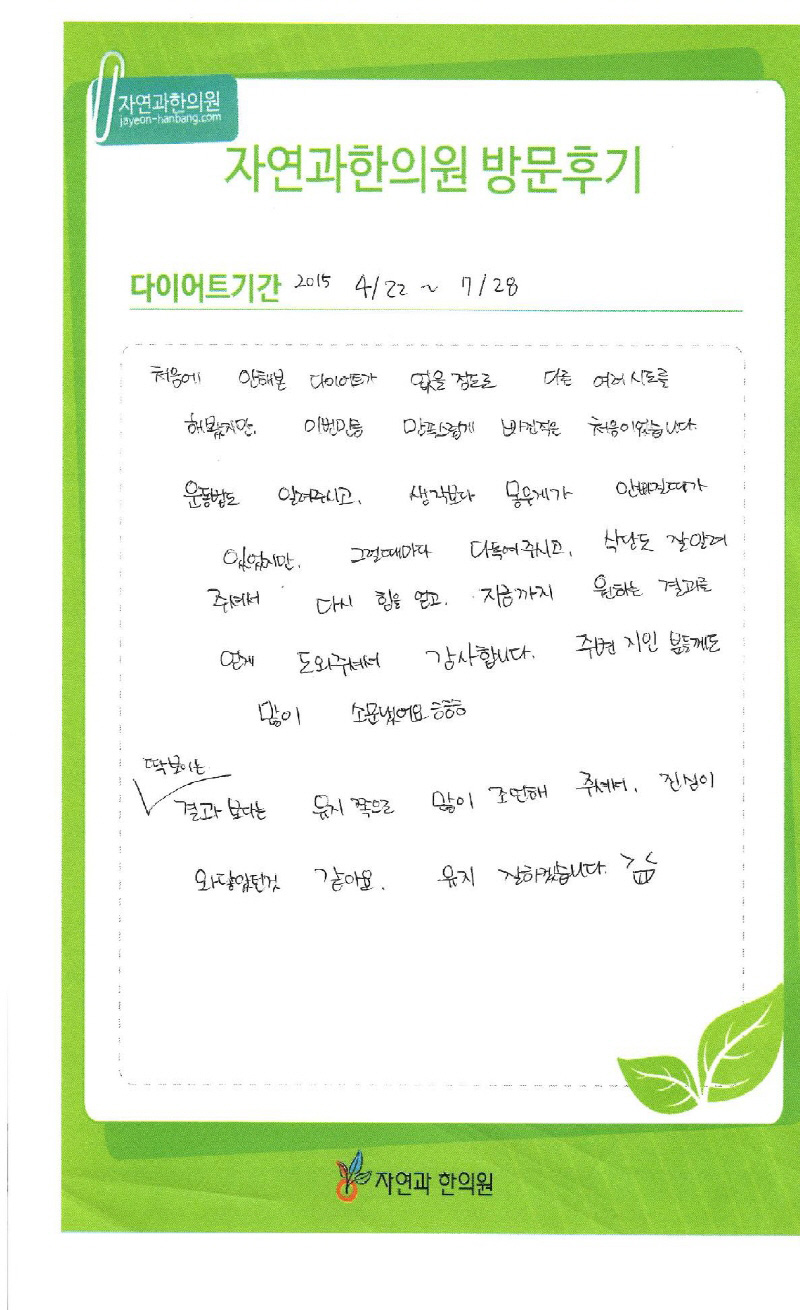 자연과한의원
jayeon-hanbang.com
자연과한의원 방문후기
다이어트기간 2015 4/22 ~ 7/28
처음에 안해본 다이어트가 없을 정도로 다른 여러 시도를
해봤지만, 이번만큼 만족스럽게 빠진적은 처음이었습니다
운동법도 알려주시고, 생각보다 몸무게가 안빠질때가
있었지만, 그럴때마다 다독여 주시고, 식단도 잘알려
주셔서 다시 힘을 얻고, 지금까지 원하는 결과를
얻게 도와주셔서 감사합니다. 주변 지인 분들께도
많이 소문냈어요 ㅎㅎㅎ
딱보이는
결과 보다는 유지 쪽으로 많이 조언해 주셔서, 진심이
와닿았던것 같아요. 유지 잘하겠습니다.
자연과 한의원